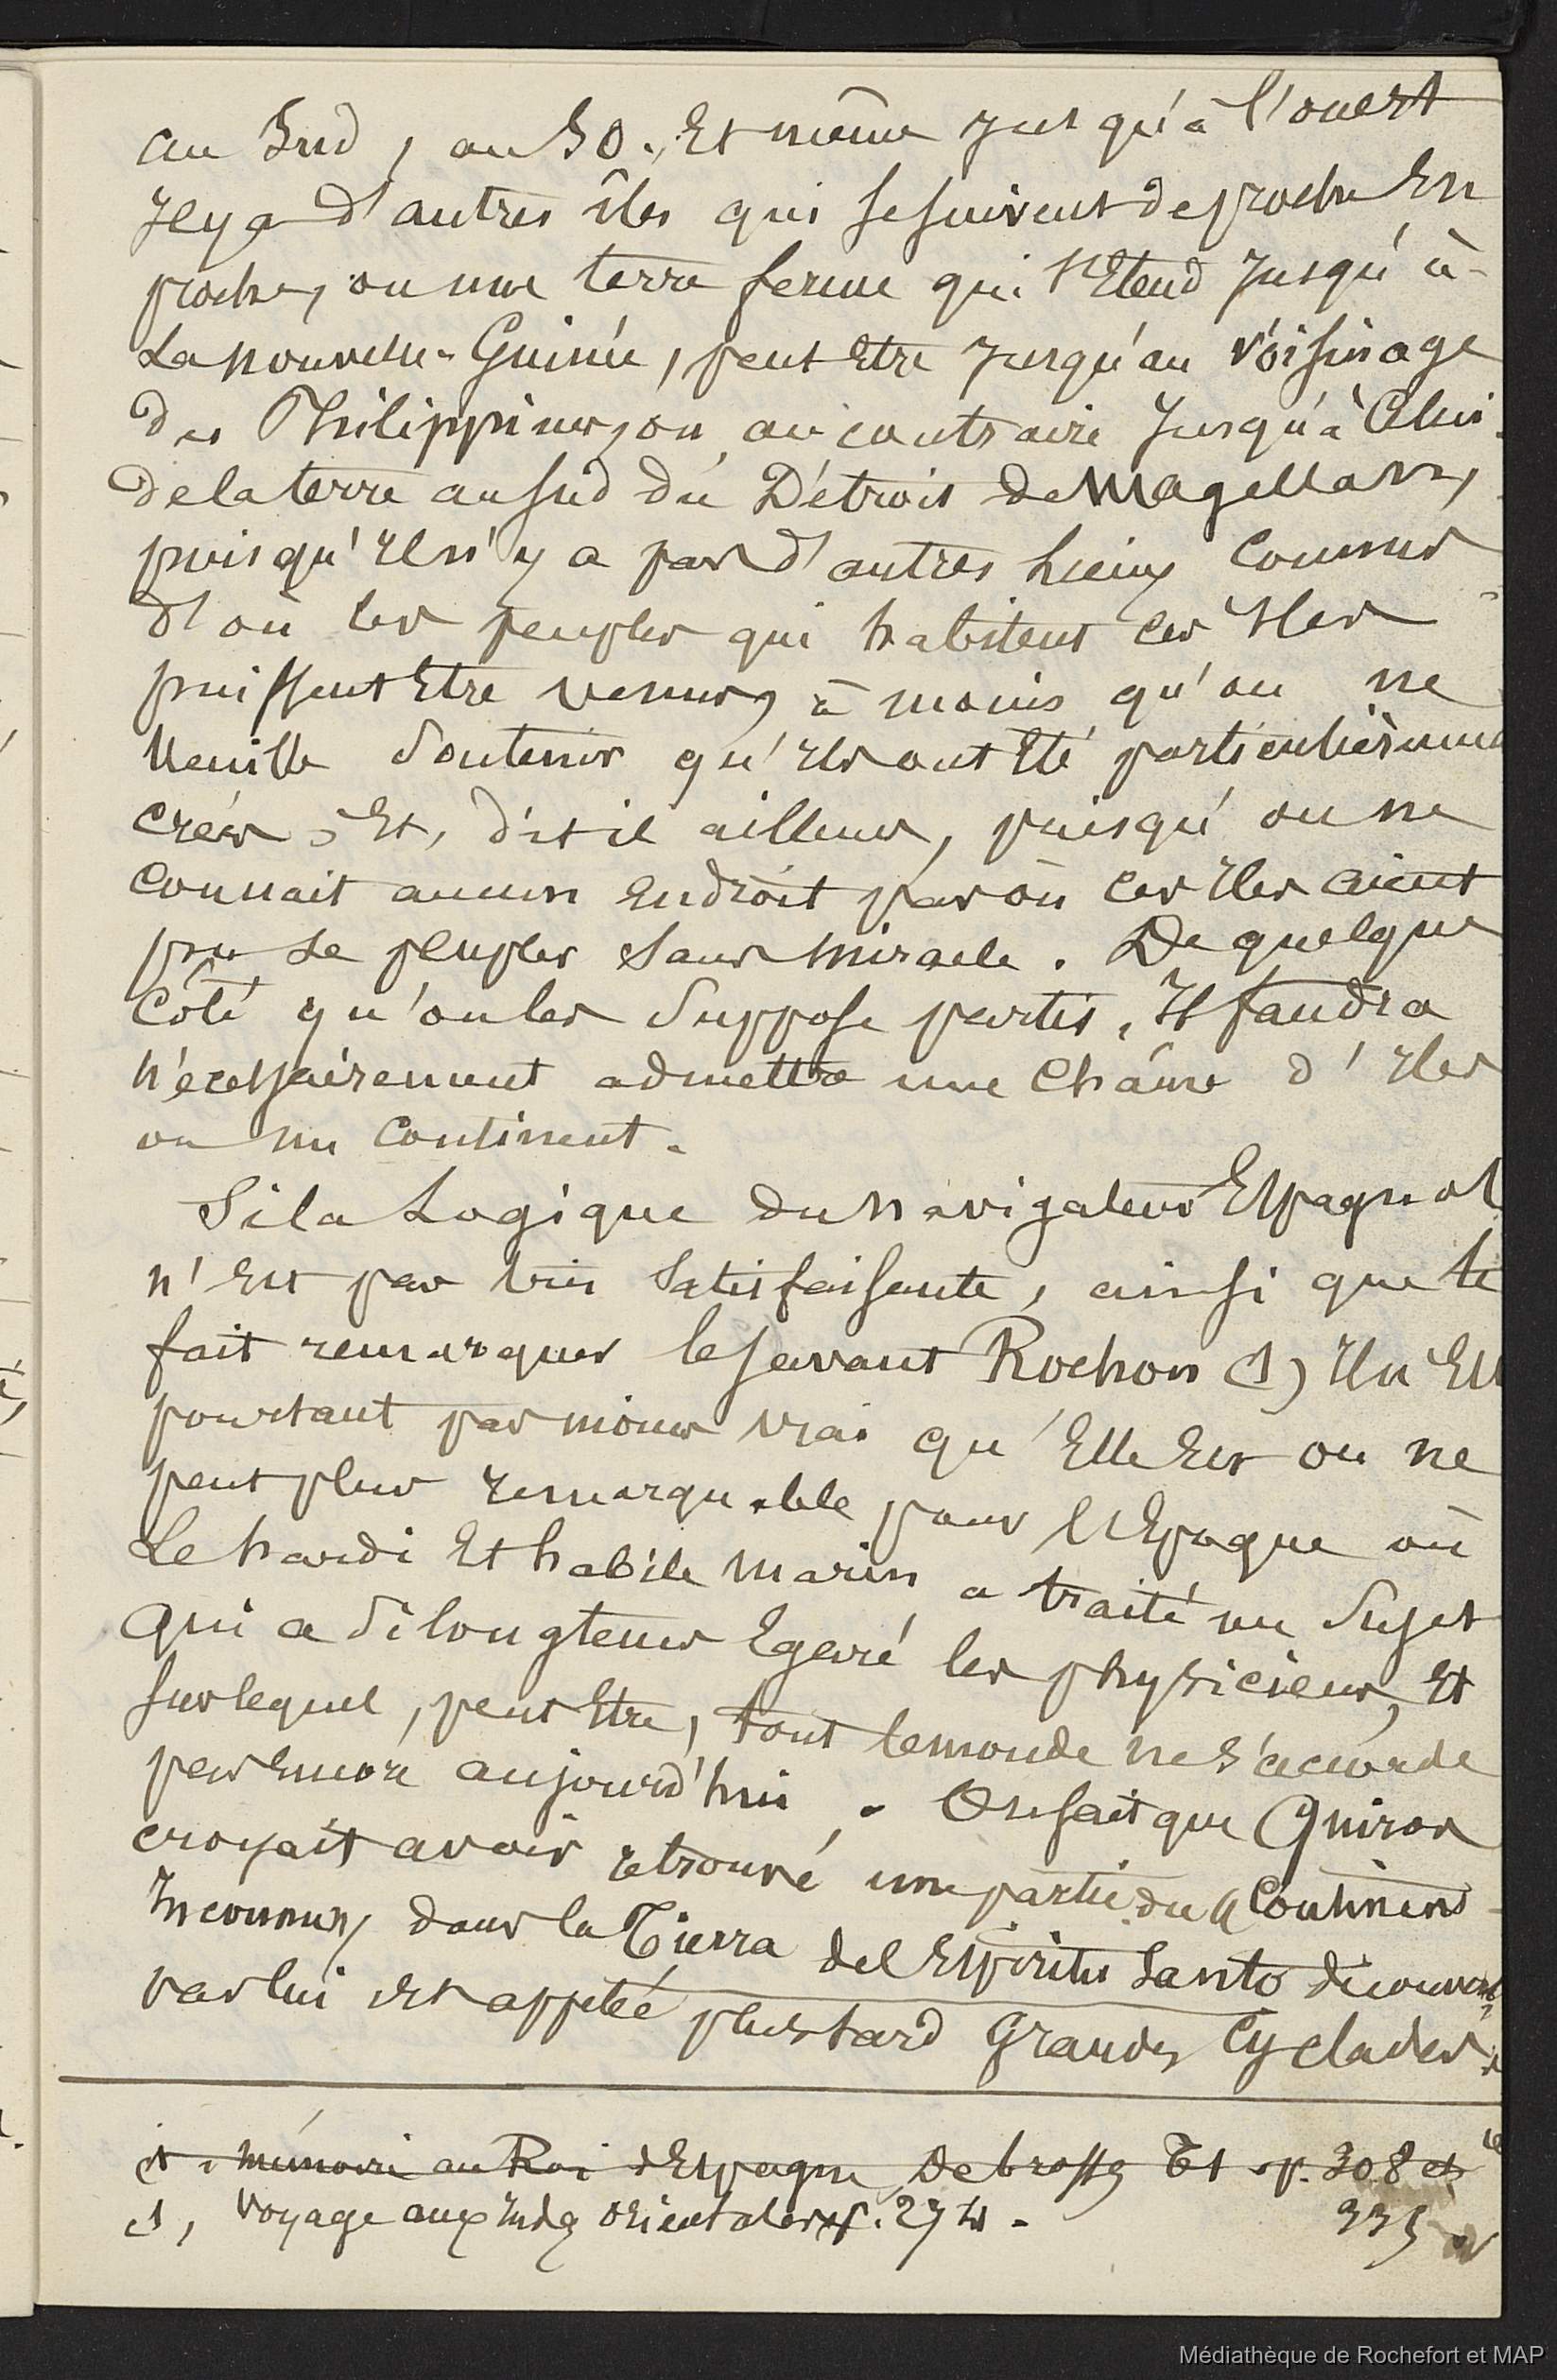 au Sud, au SO. Et même jusqu'à l'ouest
Il y a d'autres îles qui se suivent de proche En
proche, ou une terre ferme qui s'Etend Jusqu'à
La nouvelle-Guinée, peut Etre jusqu'au voisinage
des Philippines, ou au contraire Jusqu'à Celui
de la terre au sud du Détroit de Magellan,
puisqu'Il n'y a pas d'autres lieux Connus
d'où les peuples qui habitent ces Iles
puissent Etre venus, à moins qu'on ne
Veuille Soutenir qu'Ils ont Eté particulièrement
créés ; Et, dit il ailleurs, puisqu'on ne
Connait aucun Endroit par où ces Iles aient
pu se peupler Sans Miracle. De quelque
Côté qu'on les Suppose partis, Il faudra
Nécessairement admettre une Chaîne d'Iles
ou un Continent.
Si la Logique du Navigateur Espagnol
n'Est pas très Satisfaisante, ainsi que le
fait remarquer le savant Rochon (1) Il n'Est
pourtant pas moins vrai qu'Elle Est on ne
peut plus remarquable pour l'Epoque où
Le hardi Et habile Marin a traité un Sujet
Qui a si longtems Egaré les physiciens, Et
sur lequel, peut Etre, tout le monde ne s'accorde
pas Encore aujourd'hui. On sait que Quiros
croyait avoir retrouvé une partie du Continent
Inconnu, dans la Tierra del Espiritu Santo découverte
par lui Et appelée plus tard Grandes Cyclades.
1. Mémoire au Roi d'Espagne, Debrosses T1 p. 308 et
335
1, Voyage aux Indes Orientales p. 274.
Médiathèque de Rochefort et MAP